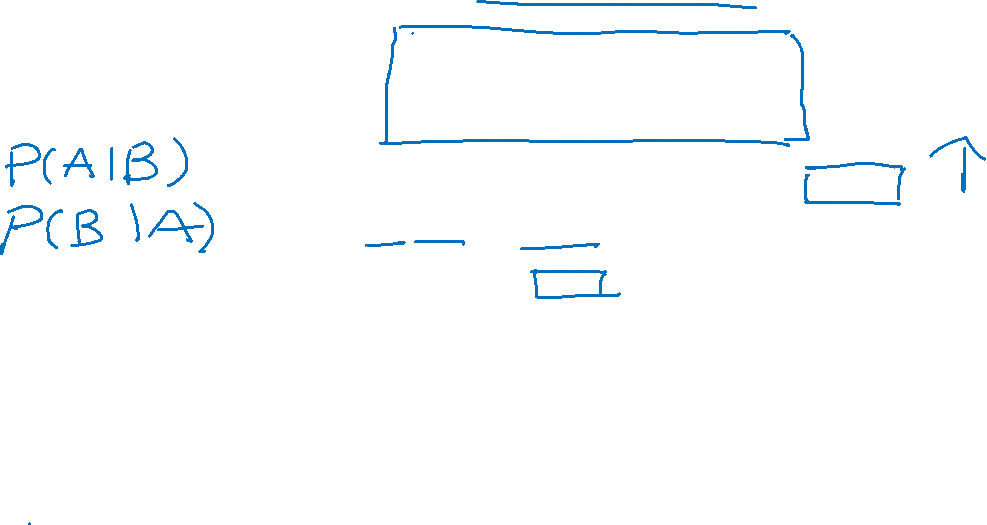 P(A|B)
P(B|A)